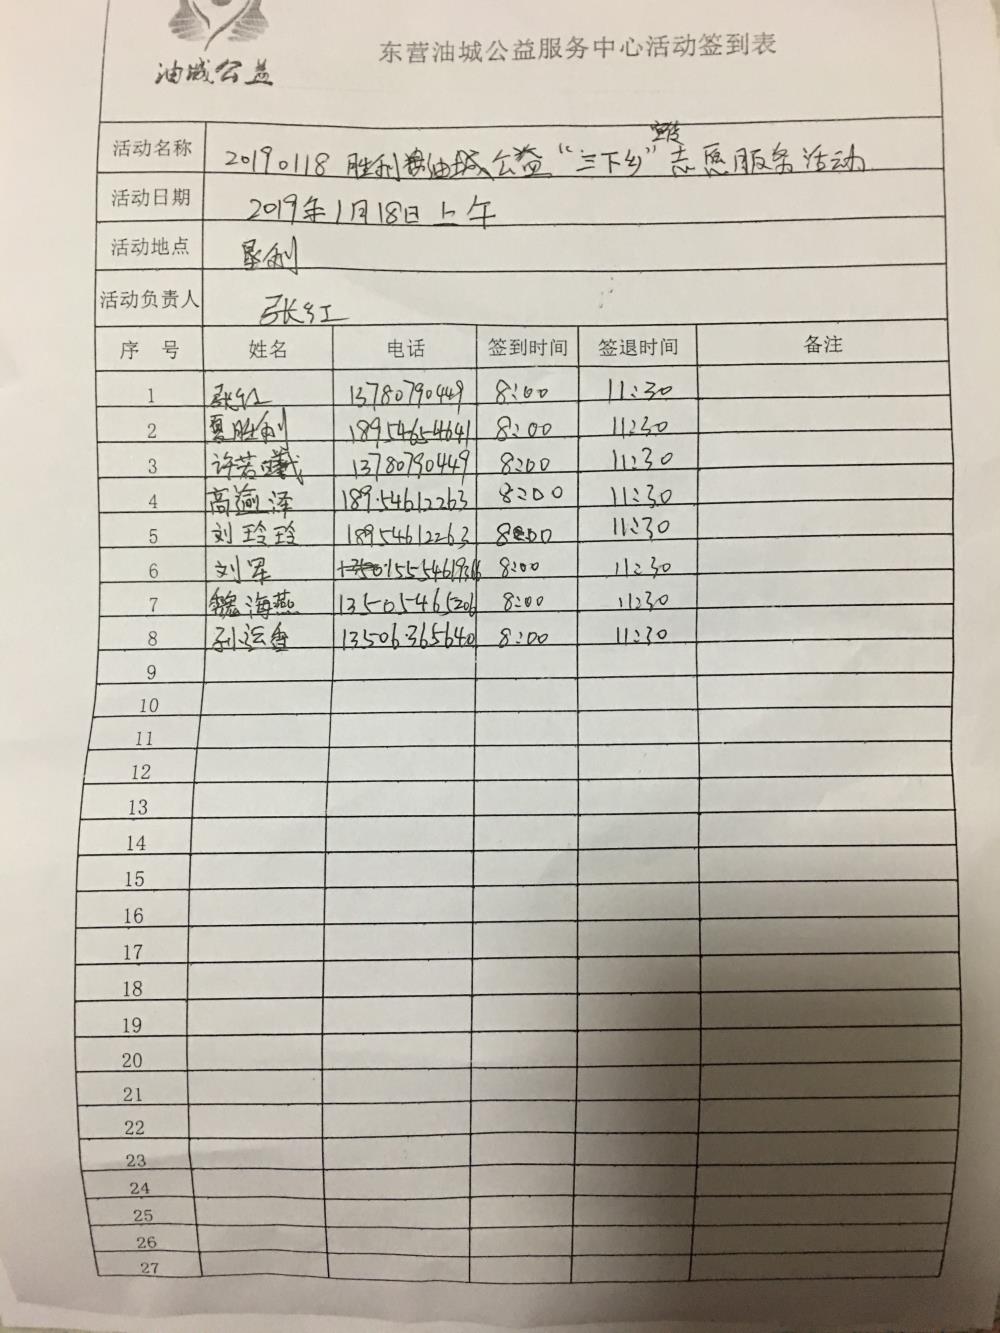 油城公益
东营油城公益服务中心活动签到表
活动名称 20190118 胜利油城公益“三下乡”志愿服务活动
活动日期 2019年1月18日上午
活动地点 垦利
活动负责人 张红
序 号 姓名 电话 签到时间 签退时间 备注
1 张红 13780790449 8:00 11:30
2 夏胜利 18954654641 8:00 11:30
3 许若曦 13780790449 8:00 11:30
4 高渝泽 18954612263 8:00 11:30
5 刘玲玲 18954612263 8:00 11:30
6 刘军 8:00 11:30
7 魏海燕 13505465206 8:00 11:30
8 孙运香 13506365640 8:00 11:30
9
10
11
12
13
14
15
16
17
18
19
20
21
22
23
24
25
26
27